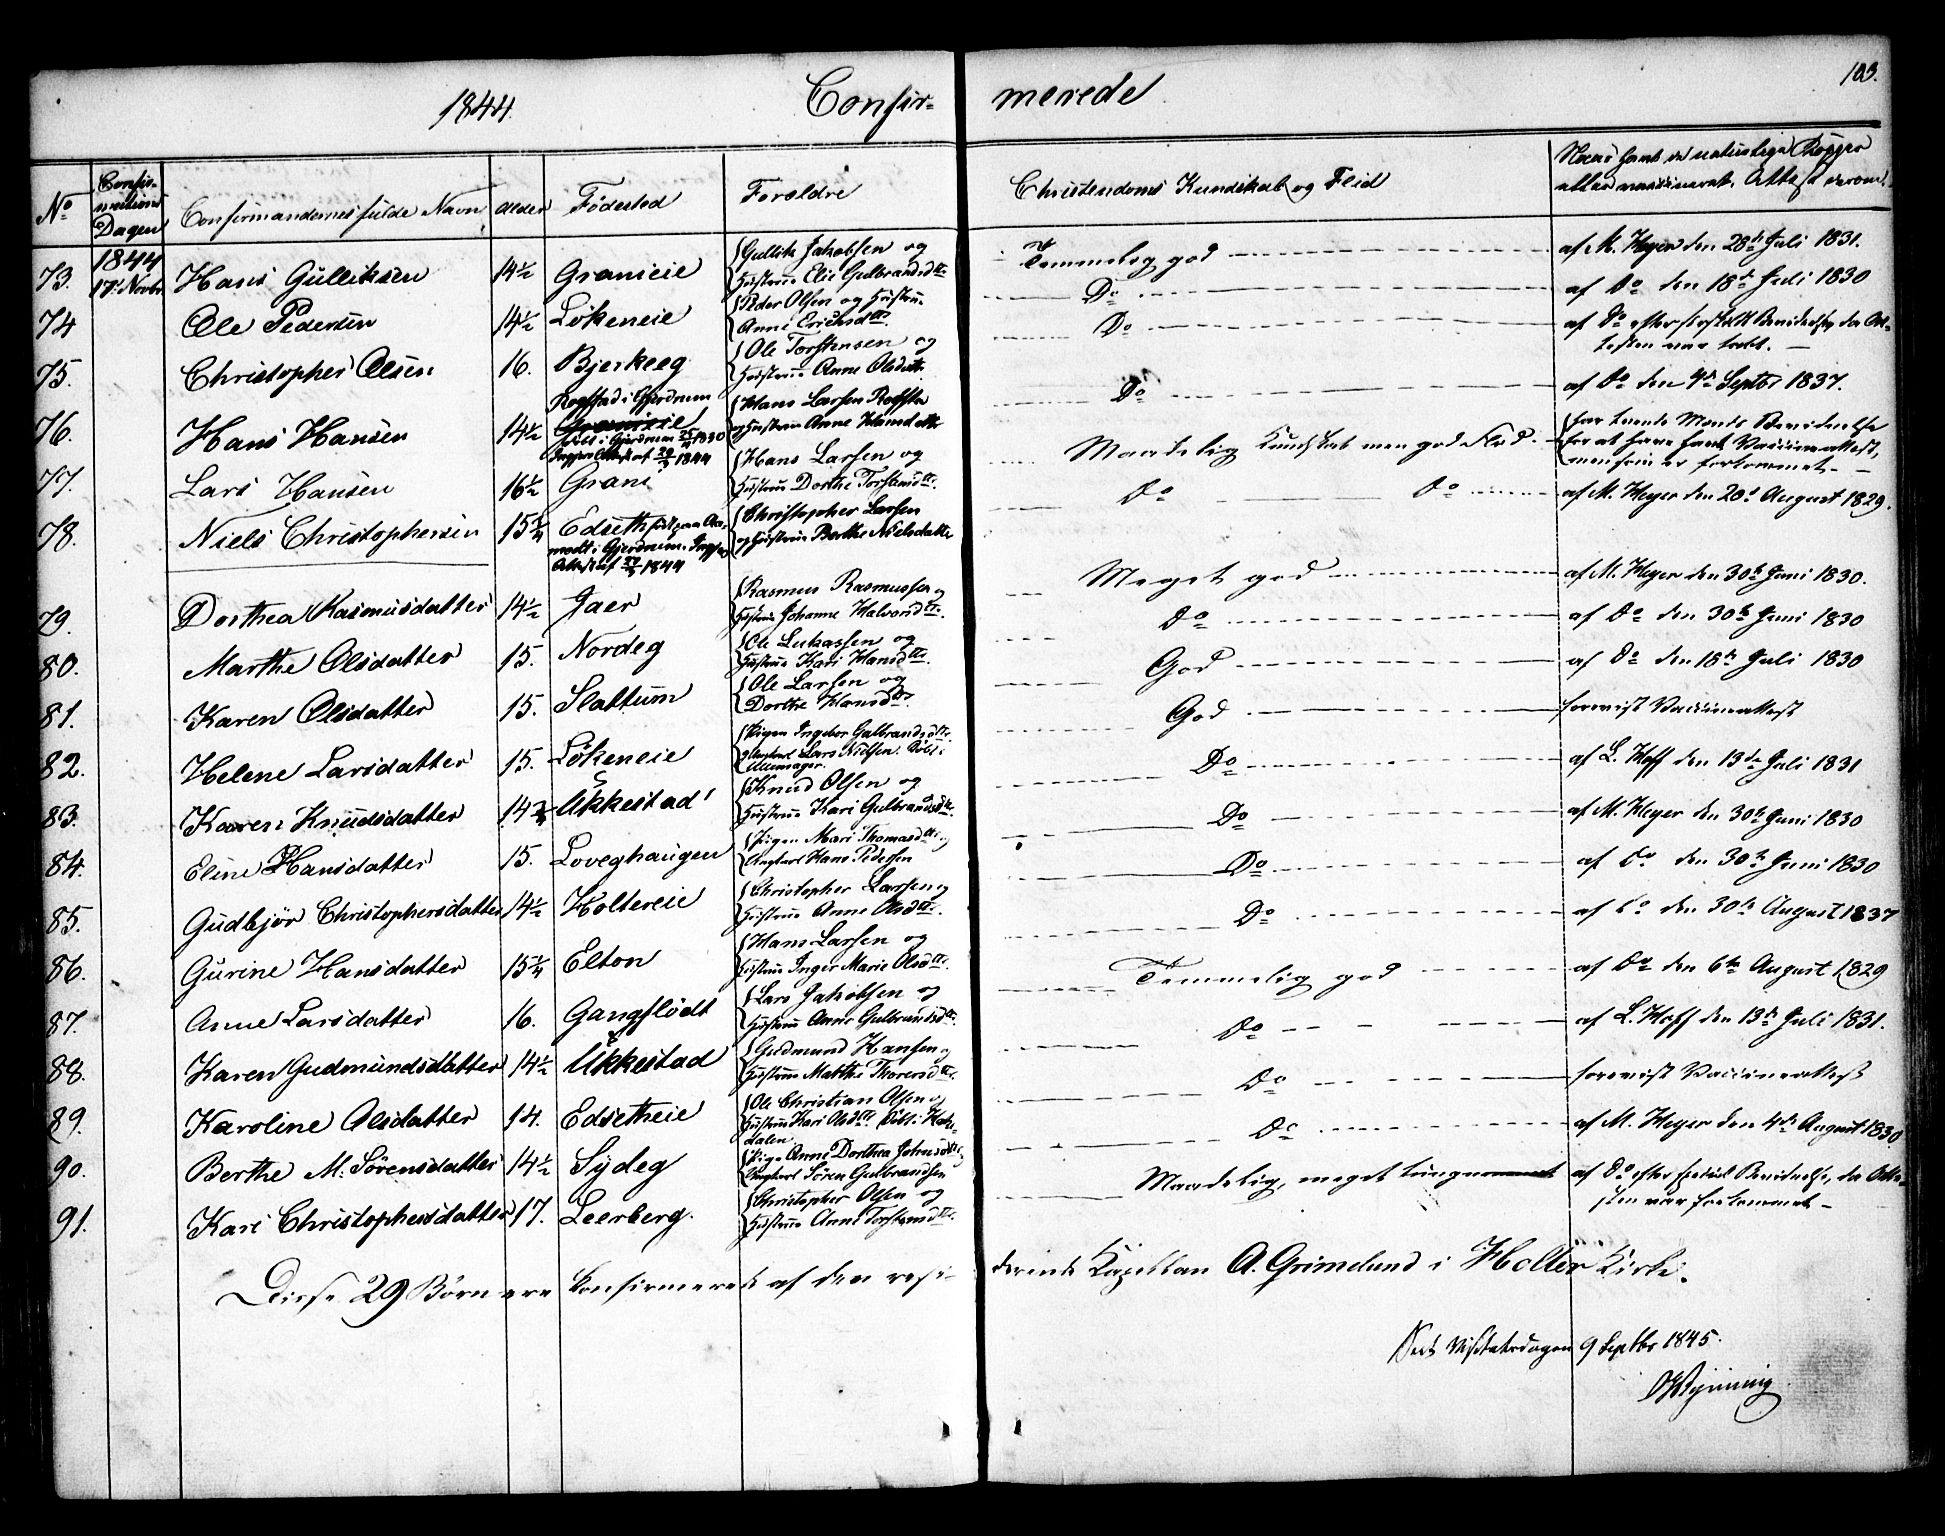 1844. Confir- merede 103.
No Confir-
mations
Dagen Confirmandernes fulde Navn Alder Födested Foreldre Christendoms Kundskab og Flid Naar havt de naturlige Kopper
eller vaccineret. Attest derom.
1844
17. Novbr.
73. Hans Gulliksen 14½ Granieie Gullik Jakobsen og
Hustrue Elie Gulbrandsdtr. Temmelig god af M. Heyer den 28de Juli 1831.
74 Ole Pedersen 14½ Lökeneie Peder Olsen og Hustrue
Anne Ericksdtr. Do af Do den 18de Juli 1830
75. Christopher Olsen 16. Bjerkeeg Ole Torstensen og
Hustrue Anne Olsdatter Do af Do efter Bevidnelse, da At-
testen var tabt.
76. Hans Hansen 14½ Rogstad i Gjerdrum
Granieie
født i Gjerdrum 1830
1844 Hans Larsen
og Hustrue Anne Hansdatter Do af Do den 4de Septbr 1837.
77. Lars Hansen 16½ Grani Hans Larsen og
Hustrue Dorthe Torstensdtr. Maadelig Kundskab men god Flid. har Mands Bevidnelse
for at have havt Vaccineattest,
men som er forkommet.
78. Niels Christophersen 15¾ Edseth född paa
i Gjerdrum.
Attest af 1844 Christopher Larsen
og Hustrue Berthe Nielsdatter Do Do af M. Heyer den 20de August 1829.
79. Dorthea Rasmusdatter 14½ Jaer Rasmus Rasmussen og
Hustrue Johanne Halvorsdtr. Meget god af M. Heyer den 30te Juni 1830.
80. Marthe Olsdatter 15. Nordeg Ole Lukassen og
Hustrue Kari Hansdtr. Do af Do den 30te Juni 1830
81. Karen Olsdatter 15. Slattum Ole Larsen og
Dorthe Hansdtr. God af Do den 18de Juli 1830
82. Helene Larsdatter 15. Lökeneie Pigen Ingebor Gulbrandsdtr.
Ungkarl Lars Nielsen.
God forevist Vaccineattest
83. Karen Knudsdatter 14¾ Ukkestad Knud Olsen og
Hustrue Kari Gulbrandsdtr. Do af L. Hoff den 13de Juli 1831
84. Eline Hansdatter 15. Loveghaugen Pigen Mari Thomasdtr. og
Ungkarl Hans Pedersen Do af M. Heyer den 30te Juni 1830
85. Gudbjör Christophersdatter 14½ Höltereie Christopher Larsen og
Hustrue Anne Olsdtr. Do af Do den 30te Juni 1830
86. Gurine Hansdatter 15¼ Elton Hans Larsen og
Hustrue Inger Marie Olsdtr. Do af Do den 30te August 1837
87. Anne Larsdatter 16. Gangflödt Lars Jakobsen og
Hustrue Anne Gulbrandsdtr. Temmelig god af Do den 6te August 1829
88. Karen Gudmundsdatter 14½ Ukkestad Gudmund Hansen og
Hustrue Marthe Thoresdtr. Do af L. Hoff den 13de Juli 1831.
89. Karoline Olsdatter 14. Edsetheie Ole Christian Olsen og
Hustrue Kari Olsdtr.
dalen. Do forevist Vaccineattest
90. Berthe M. Sörensdatter 14½ Sydeg Pige Anne Dorthea Johnsdtr. og
Ungkarl Sören Gulbrandsen Do af M. Heyer den 4de August 1830
91. Kari Christophersdatter 17. Leerberg. Christopher Olsen og
Hustrue Anne Torstensdtr. Maadelig, meget tungnemmet af Do efter speciel Bevidnelse, da Atte-
sten var forkommet.
Disse 29 Börn ere konfirmerede af den resi- derende Kapellan A. Grimelund i Holter Kirke.
Seet Visitatsdagen 9 Septbr 1845.